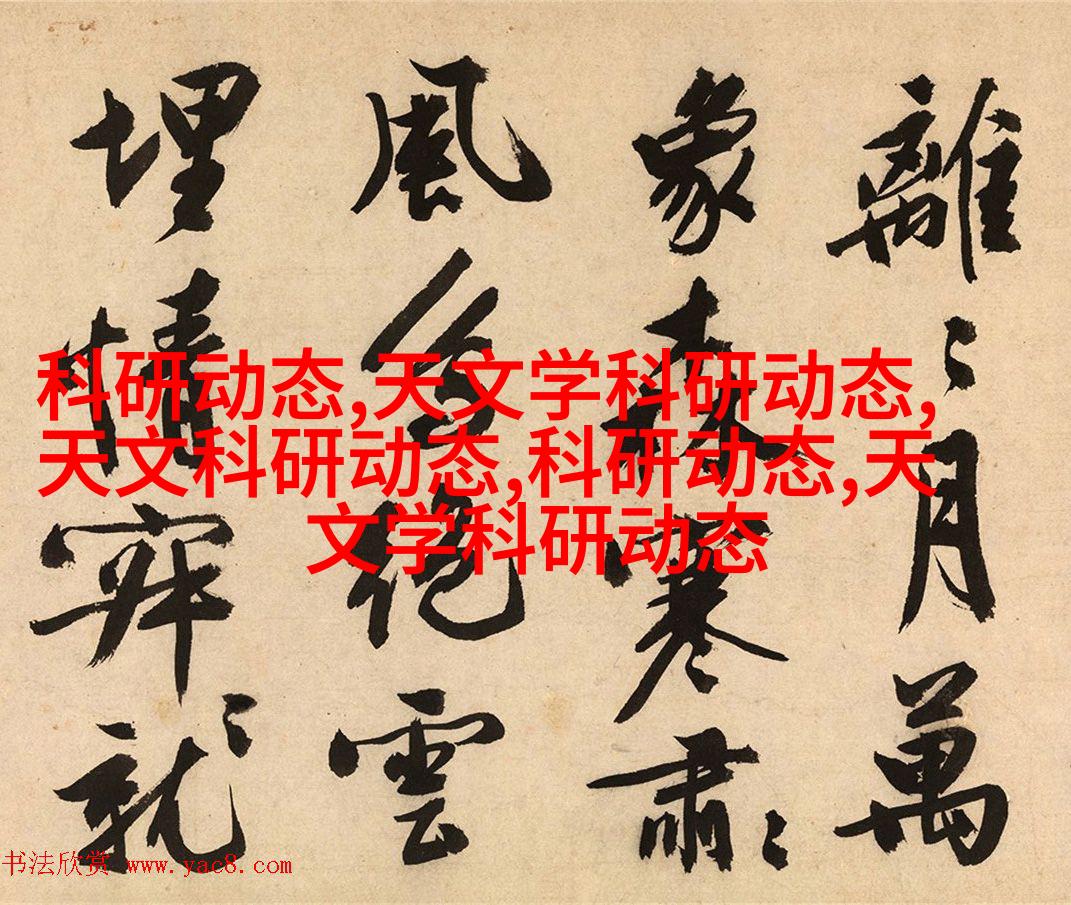 離〻月萬
象森寒肅〻
風雲
埋情就〻
科研动态,天文学科研动态,
天文科研动态,科研动态,天
文学科研动态
书法欣赏 www.yac8.com